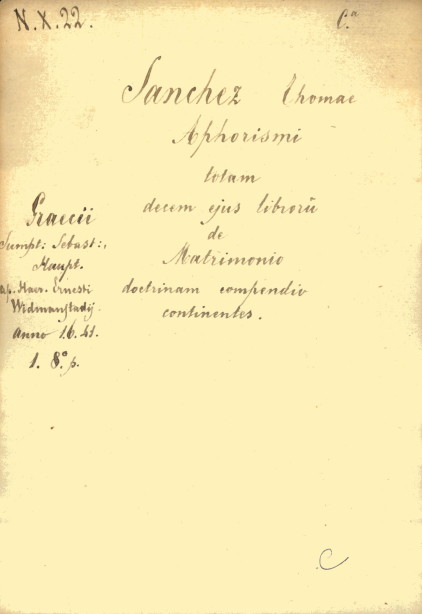 N.X.22.
C.ª
Sanchez Thomae
Aphorismi
totam
decem ejus librorū
de
Matrimonio
doctrinam compendio
continentes.
Graecii
Sumpt: Sebast:
Haupt.
ap. Haer. Ernesti
Widmanstadij.
anno 1641.
1. 8º p.
C